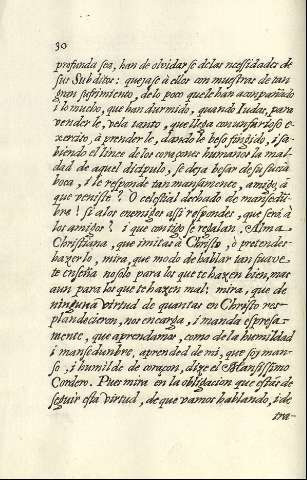 30
profunda sea, han de olvidarse de las necesidades de
sus Subditos: quejase à ellos con muestras de tan
gran sufrimiento, de lo poco que le han acompañado
i lo mucho, que han durmido, quando Iudas, para
venderle, vela tanto, que llega con un furdoso e-
xercito, à prenderle, dandole beso fingido, i sa-
biendo el lince de los coraçones humanos la mal-
dad de aquel dicipulo, se deja besar de su sucia
boca, i le responde tan mansamente, amigo, à
que veniste? O celestial dechado de mansedu-
bre! si a los enemigos assi respondes, que serà à
los amigos? i que contigo se regalan. Alma
Christiana, que imitas à Christo, o pretendes
hazerlo, mira, que modo de hablar tan suave
te enseña no solo para los que te hazen bien, mas
aun para los que te hazen mal; mira, que de
ninguna virtud de quantas en Christo res-
plandecieron, nos encarga, i manda espresa-
mente, que aprendamos, como de la humildad
i mansedunbre, aprended de mi, que soy man-
so, i humilde de coraçon, dize el Mansissimo
Cordero. Pues mira en la obligacion que estàs de
seguir esta virtud, de que vamos hablando, i de
tra-